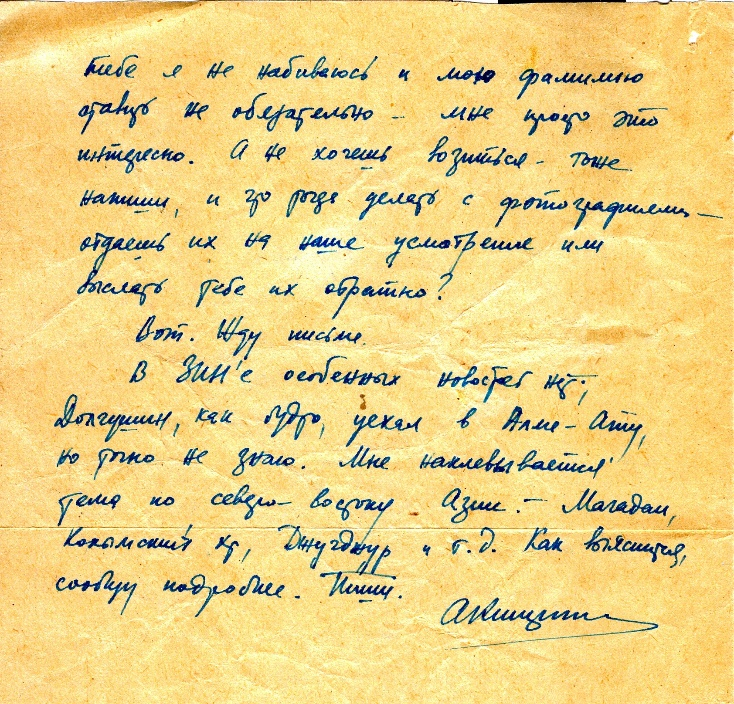 тебе я не набиваюсь и мою фамилию
ставить не обязательно — мне просто это
интересно. А не хочешь возиться — тоже
напиши, и что тогда делать с фотографиями —
отдаешь их на наше усмотрение или
выслать тебе их обратно?
Вот. Жду письма.
В ЗИН'е особенных новостей нет;
Долгушин, как будто, уехал в Алма-Ату,
но точно не знаю. Мне наклевывается
тема по северо-востоку Азии — Магадан,
Колымский хр, Джугджур и т.д. Как выяснится,
сообщу подробнее. Пиши.